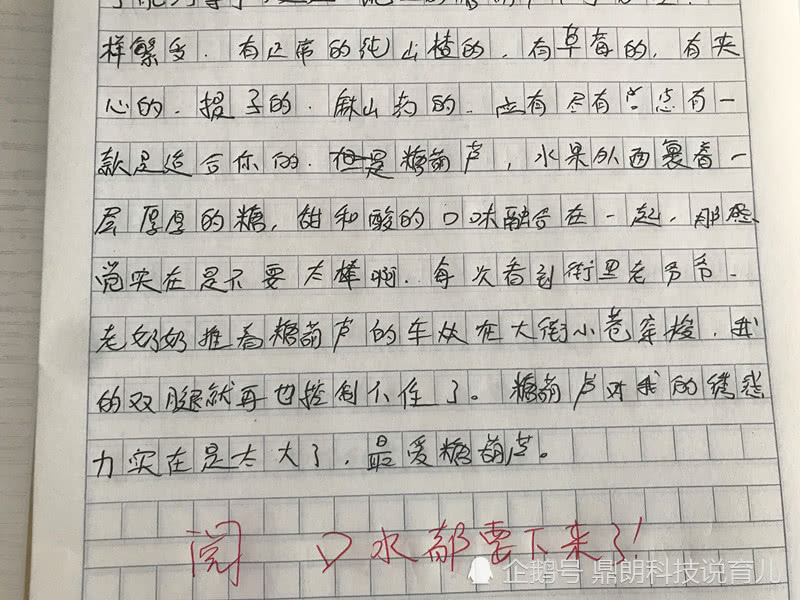 样繁多，有正常的纯山楂的，有草莓的，有夹
心的，提子的，麻山药的，应有尽有总有一
款是适合你的，但是糖葫芦，水果外面裹着一
层厚厚的糖，甜和酸的口味融合在一起，那感
觉实在是不要太棒啊。每次看到街里老爷爷、
老奶奶推着糖葫芦的车从在大街小巷穿梭，我
的双腿就再也控制不住了。糖葫芦对我的诱惑
力实在是太大了，最爱糖葫芦。
阅 口水都要下来了！
企鹅号 鼎朗科技说育儿